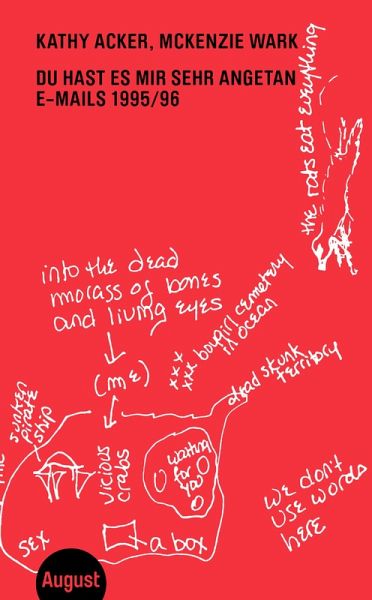 KATHY ACKER, MCKENZIE WARK
DU HAST ES MIR SEHR ANGETAN
E-MAILS 1995/96
the rats eat everything
into the dead
morass of bones
and living eyes
(me)
xxx
xxx boygirl cemetery
in ocean
dead skunk
territory
sunken
pirate
ship
vicious
crabs
waiting
for
you
sex
a box
we don't
use words
here
August